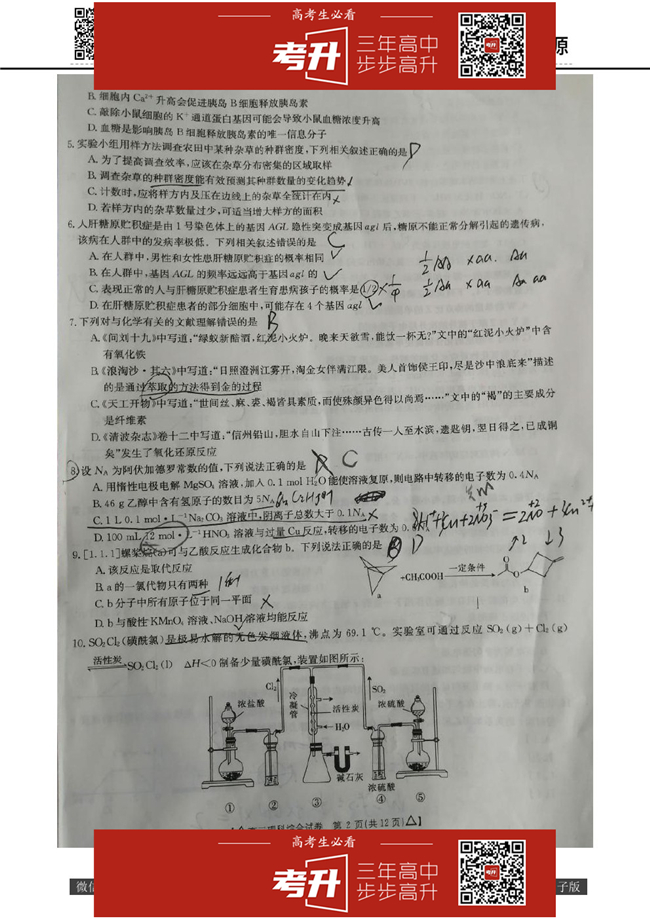 高考生必看
考升
三年高中
步步高升
源
B. 细胞内 Ca²⁺ 升高会促进胰岛 B 细胞释放胰岛素
C. 敲除小鼠细胞的 K⁺ 通道蛋白基因可能会导致小鼠血糖浓度升高
D. 血糖是影响胰岛 B 细胞释放胰岛素的唯一信息分子
5. 实验小组用样方法调查农田中某种杂草的种群密度,下列相关叙述正确的是 D
A. 为了提高调查效率,应该在杂草分布密集的区域取样
B. 调查杂草的种群密度能有效预测其种群数量的变化趋势
C. 计数时,应将样方内及压在边线上的杂草全统计在内
D. 若样方内的杂草数量过少,可适当增大样方的面积
6. 人肝糖原贮积症是由 1 号染色体上的基因 AGL 隐性突变成基因 agl 后,糖原不能正常分解引起的遗传病,
该病在人群中的发病率极低。下列相关叙述错误的是 C
A. 在人群中,男性和女性患肝糖原贮积症的概率相同 √
B. 在人群中,基因 AGL 的频率远远高于基因 agl 的 √
C. 表现正常的人与肝糖原贮积症患者生育患病孩子的概率是 1/2 × 1/4
D. 在肝糖原贮积症患者的部分细胞中,可能存在 4 个基因 agl √
1/2 AA × aa. Aa
1/2 Aa × aa Aa aa
7. 下列对与化学有关的文献理解错误的是 B
A.《问刘十九》中写道:“绿蚁新醅酒,红泥小火炉。晚来天欲雪,能饮一杯无?”文中的“红泥小火炉”中含
有氧化铁
B.《浪淘沙·其六》中写道:“日照澄洲江雾开,淘金女伴满江隈。美人首饰侯王印,尽是沙中浪底来”描述
的是通过萃取的方法得到金的过程
C.《天工开物》中写道:“世间丝、麻、裘、褐皆具素质,而使殊颜异色得以尚焉……”文中的“褐”的主要成分
是纤维素
D.《清波杂志》卷十二中写道,“信州铅山,胆水自山下注……古传一人至水滨,遗匙钥,翌日得之,已成铜
矣”发生了氧化还原反应
8. 设 NA 为阿伏加德罗常数的值,下列说法正确的是 C
A. 用惰性电极电解 MgSO₄ 溶液,加入 0.1 mol H₂O 能使溶液复原,则电路中转移的电子数为 0.4NA
B. 46 g 乙醇中含有氢原子的数目为 5NA
C. 1 L 0.1 mol·L⁻¹ Na₂CO₃ 溶液中,阴离子总数大于 0.1NA
D. 100 mL 12 mol·L⁻¹ HNO₃ 溶液与过量 Cu 反应,转移的电子数为
9. [1.1.1]螺桨烷(a)可与乙酸反应生成化合物 b。下列说法正确的是 D
A. 该反应是取代反应
B. a 的一氯代物只有两种
C. b 分子中所有原子位于同一平面 ×
D. b 与酸性 KMnO₄ 溶液、NaOH 溶液均能反应
+CH₃COOH 一定条件
a
b
10. SO₂Cl₂(磺酰氯)是极易水解的无色发烟液体,沸点为 69.1 ℃。实验室可通过反应 SO₂(g)+Cl₂(g)
活性炭 SO₂Cl₂(l) ΔH<0 制备少量磺酰氯,装置如图所示:
Cl₂
SO₂
浓盐酸
冷凝管
活性炭
H₂O
浓硫酸
碱石灰
浓硫酸
① ② ③ ④ ⑤
理科综合试卷 第 2 页(共 12 页)△】
高考生必看
微信
考升
三年高中
步步高升
子版